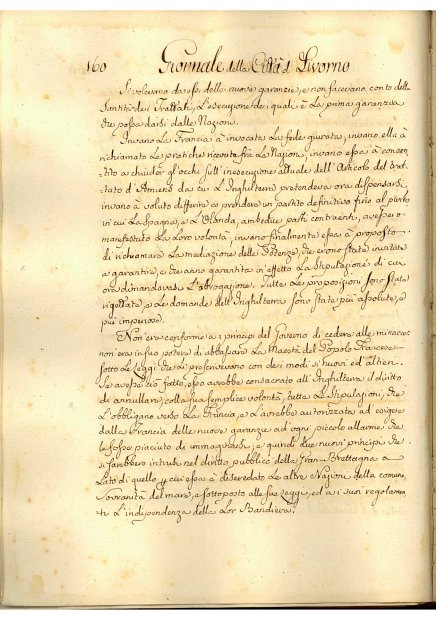 160 Giornale della Città di Livorno
Si volevano da essi delle nuove garanzie, e non facevano conto della
Santità dei Trattati, l'esecuzione dei quali è la prima garanzia
che possa darsi dalle Nazioni.
Invano la Francia à invocata la fede giurata, invano ella à
richiamato le pratiche ricevute frà le Nazioni, invano essa à consen-
tito a chiuder gl'occhi sull'inesecuzione attuale dell'Articolo del trat-
tato d'Amiens da cui l'Inghilterra pretendeva ora dispensarsi,
invano à voluto differire a prendere un partito definitivo fino al punto
in cui la Spagna, e l'Olanda, ambedue parti contraenti, avessero
manifestato la loro volontà, invano finalmente essa à proposto
di richiamare la mediazione delle Potenze, che erono state invitate
a garantire, e che anno garantita in effetto la Stipulazione di cui
ora dimandavasi l'abrogazione. Tutte le proposizioni sono state
rigettate, e le demande dell'Inghilterra sono state più assolute, e
più imperiose.
Non era conforme a i principi del Governo di cedere alle minacce
non era in suo potere di abbassare la Maestà del Popolo Francese
sotto le Leggi che si prescrivevano con dei modi sì nuovi ed altieri.
Se avesse ciò fatto, esso avrebbe consacrato all'Inghilterra il diritto
di annullare, colla sua semplice volontà, tutte le Stipulazioni, che
l'obbligano verso la Francia, e l'avrebbe autorizzata ad esigere
dalla Francia delle nuove garanzie ad ogni piccolo allarme che
le fosse piaciuto di immaginarsi, e quindi due nuovi principi che
si sarebbero intrusi nel diritto pubblico della Gran-Brettagna a
lato di quello p cui essa à diseredato le altre Nazioni della comune
Sovranità del mare, e sottoposto alle sue Leggi, ed a i suoi regolamen-
ti l'indipendenza della lor Bandiera.